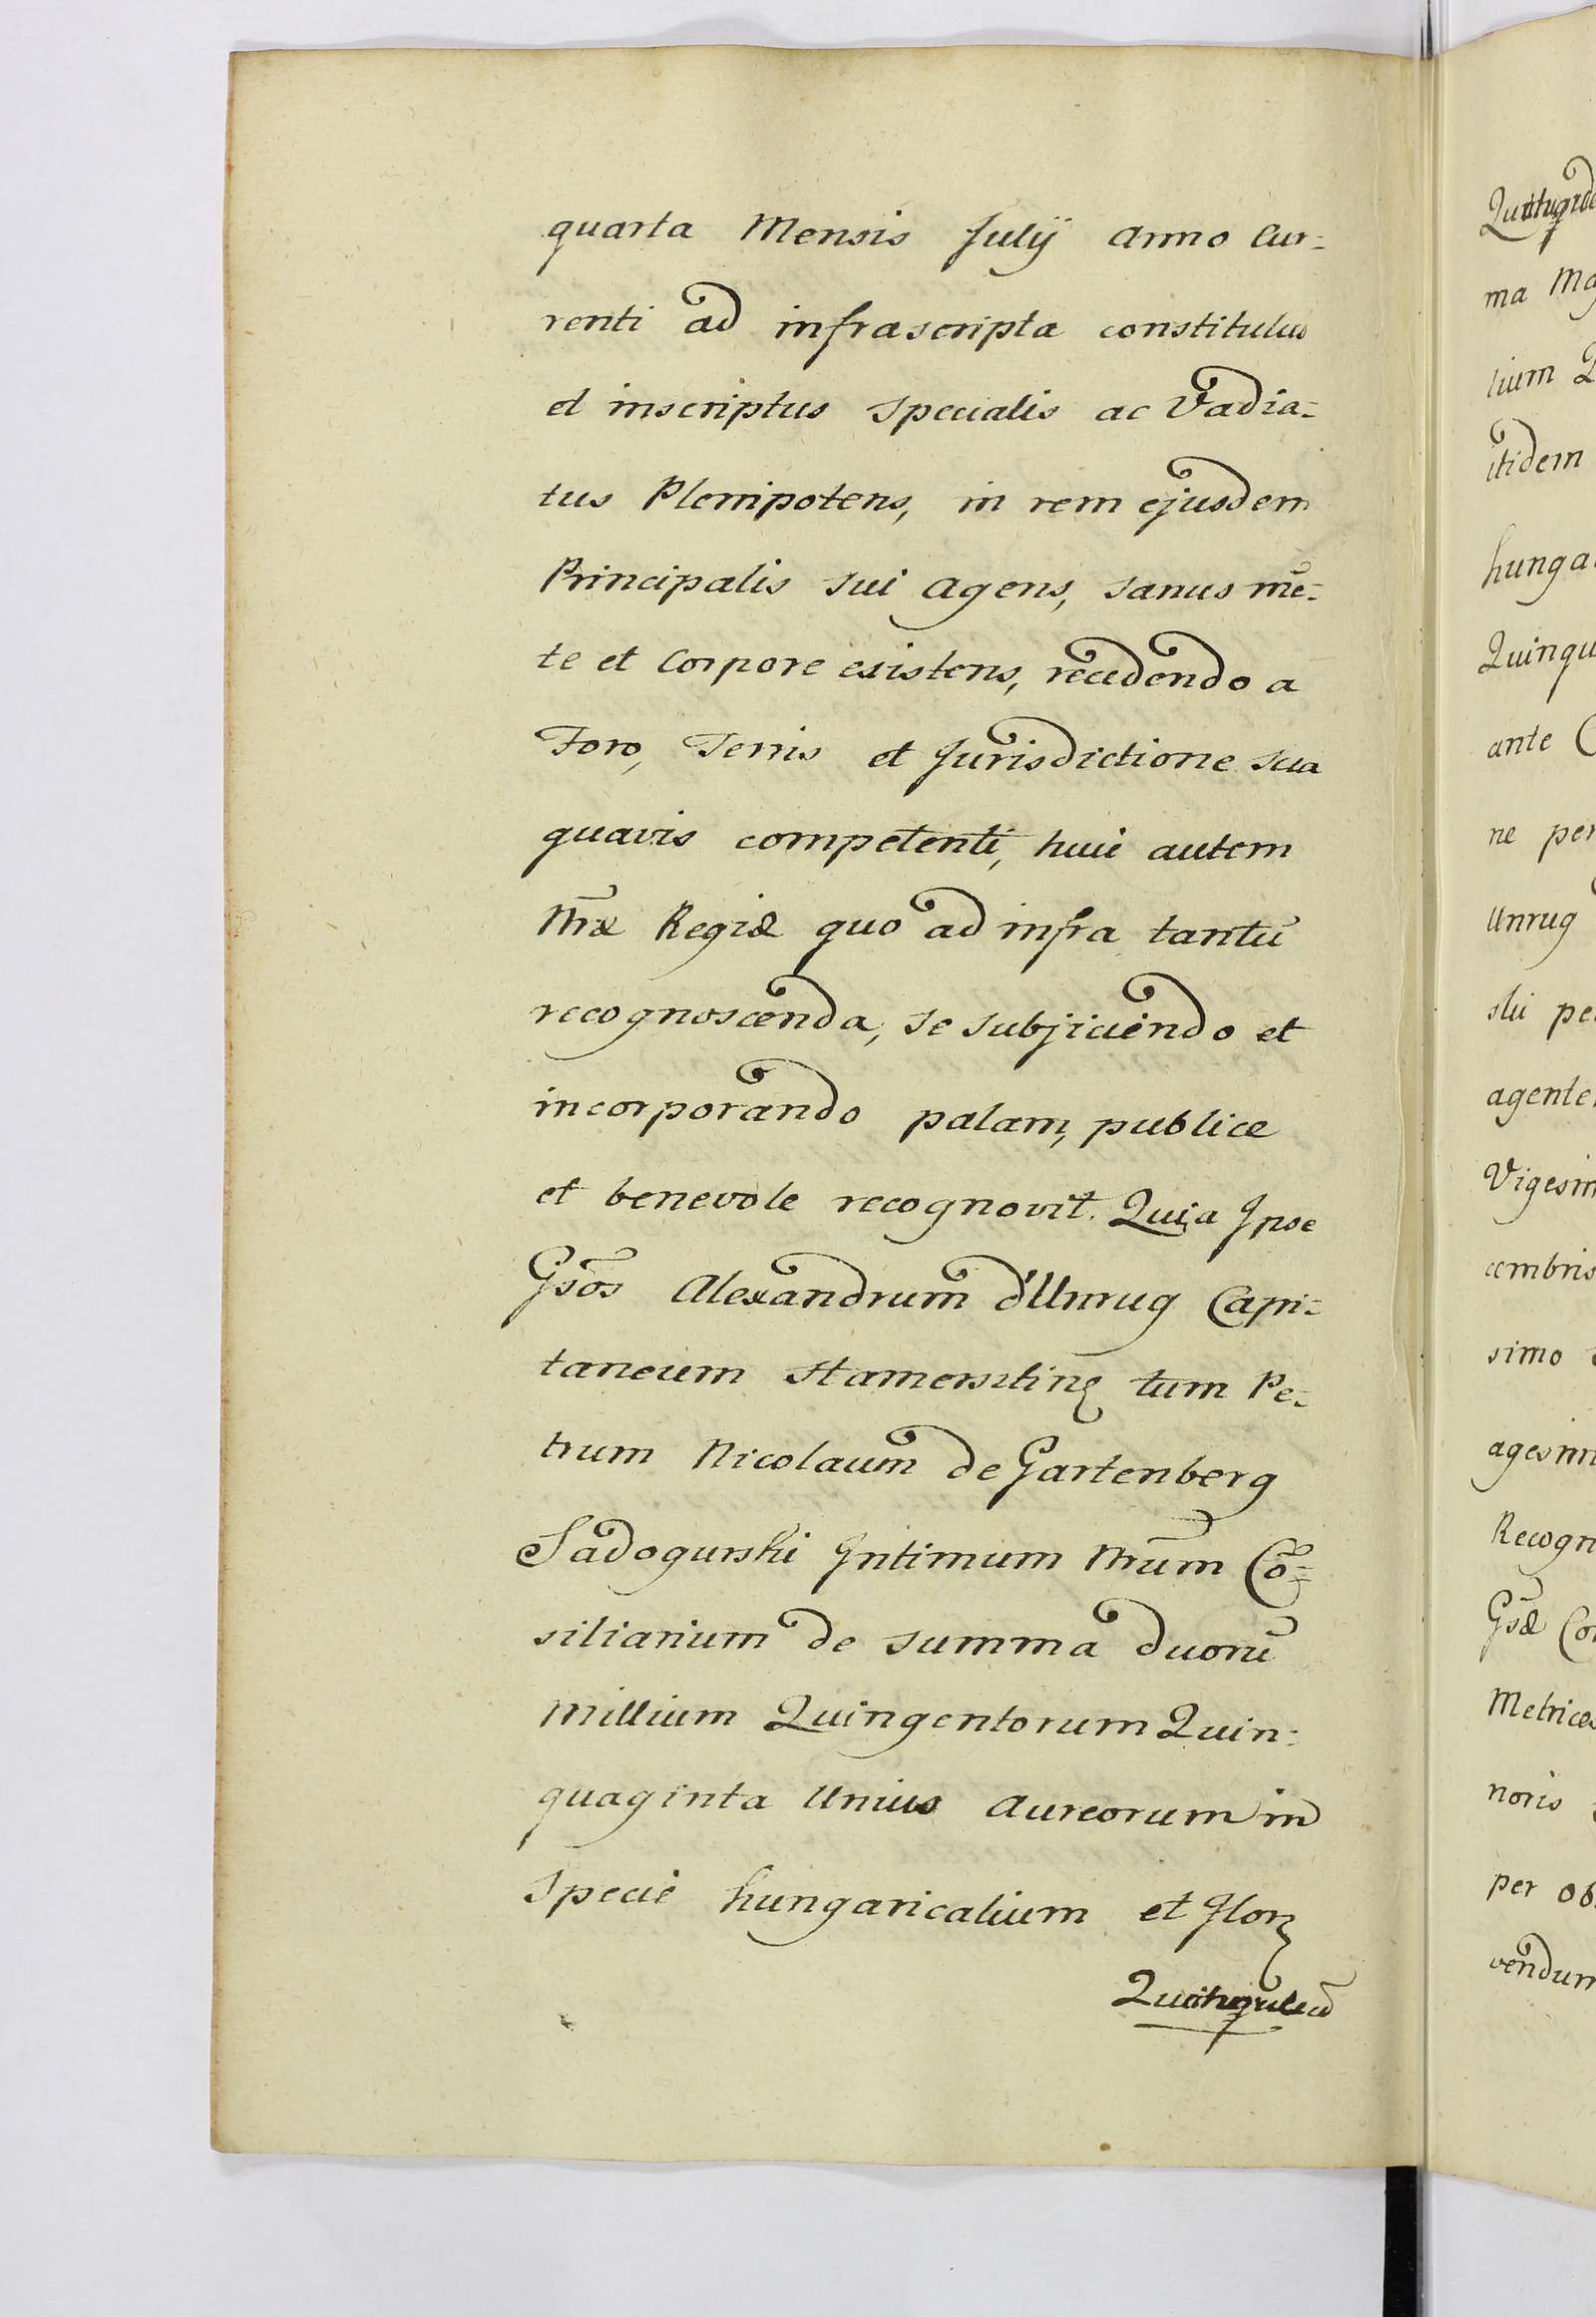 quarta Mensis Julÿ anno Cur=
renti ad infrascripta constitutus
et inscriptus specialis ac Vadia=
tus Plenipotens, in rem ejusdem
Principalis sui agens, sanus mē=
te et Corpore existens, recedendo a
Foro, Terris et Jurisdictione sua
quavis competenti, huic autem
Nr̃æ Regiæ quo ad infra tantū
recognoscenda, se subjiciendo et
incorporando palam, publice
et benevole recognovit. Quia Ipse
Gsõs Alexandrum d'Unrug Capi=
taneum Hamersztinẽ tum Pe=
trum Nicolaum de Gartenberg
Sadogurski Intimum Nrũm Cõ=
siliarium de summa duorū
Millium Quingentorum Quin=
quaginta Unius aureorum in
specie hungaricalium et Flor
ma
lium
itidem
hunga
Quinqu
ante
ne per
Unrug
ski pe
agente
Vigesim
cembris
simo
agesim
Recogn
Gsæ Co
Metrices
noris
per ob
vendum